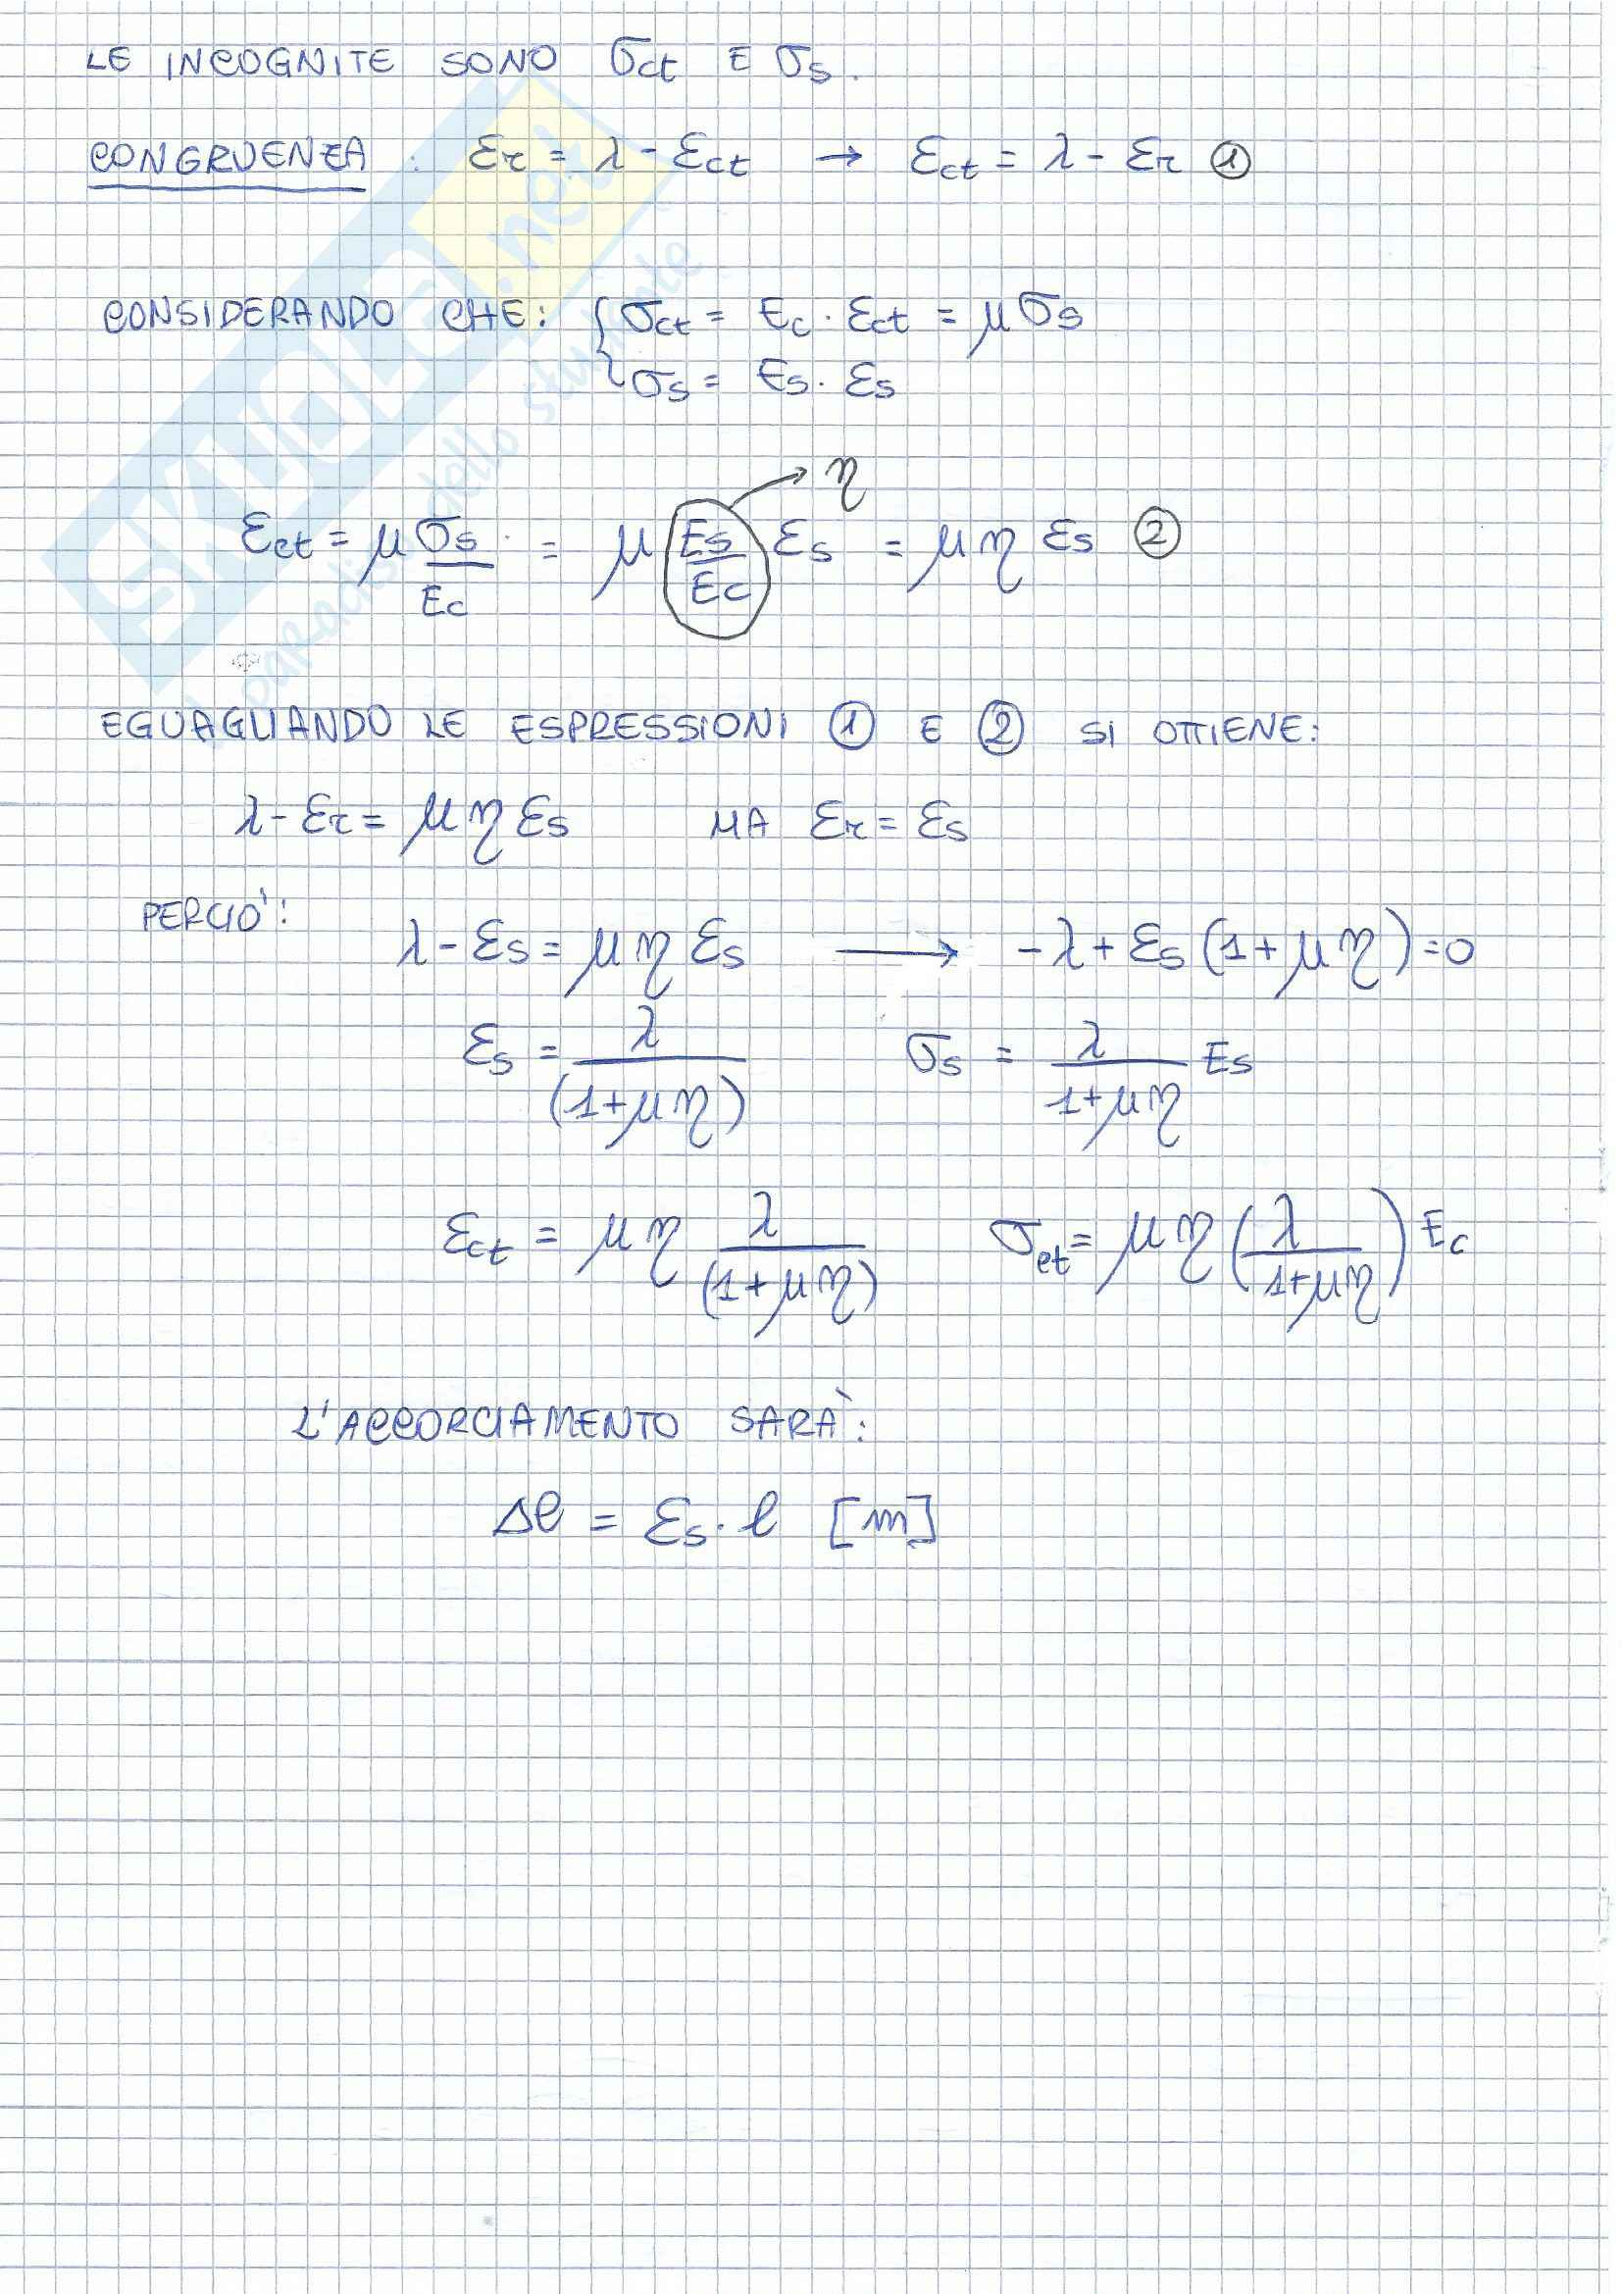 LE INCOGNITE SONO σct E σs.
CONGRUENZA : εr = λ - εct → εct = λ - εr ①
CONSIDERANDO CHE: { σct = Ec · εct = μ σs
σs = Es · εs
→ η
εct = μ σs/Ec = μ Es/Ec εs = μ η εs ②
EGUAGLIANDO LE ESPRESSIONI ① E ② SI OTTIENE:
λ - εr = μ η εs MA εr = εs
PERCIO':
λ - εs = μ η εs → -λ + εs (1 + μ η) = 0
εs = λ/(1+μη) σs = λ/1+μη Es
εct = μ η λ/(1+μη) σct = μ η (λ/1+μη) Ec
L'ACCORCIAMENTO SARÀ:
Δl = εs · l [m]
SKUOLA.net
il paradiso dello studente